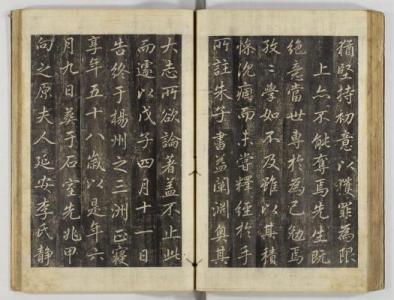 猶堅持初意以僕罪為限
上亦不能奪焉先生既
絶意當世專於為己勉焉
孜孜學如不及雖以其積
慘沈痼而未嘗釋經於手
所註朱子書益闡淵奧其
大志所欲論著盖不止此
而遽以戊子四月十一日
告終于楊州之三洲正寢
享年五十八歲以是年六
月九日葬于石室先兆甲
向之原夫人延安李氏靜